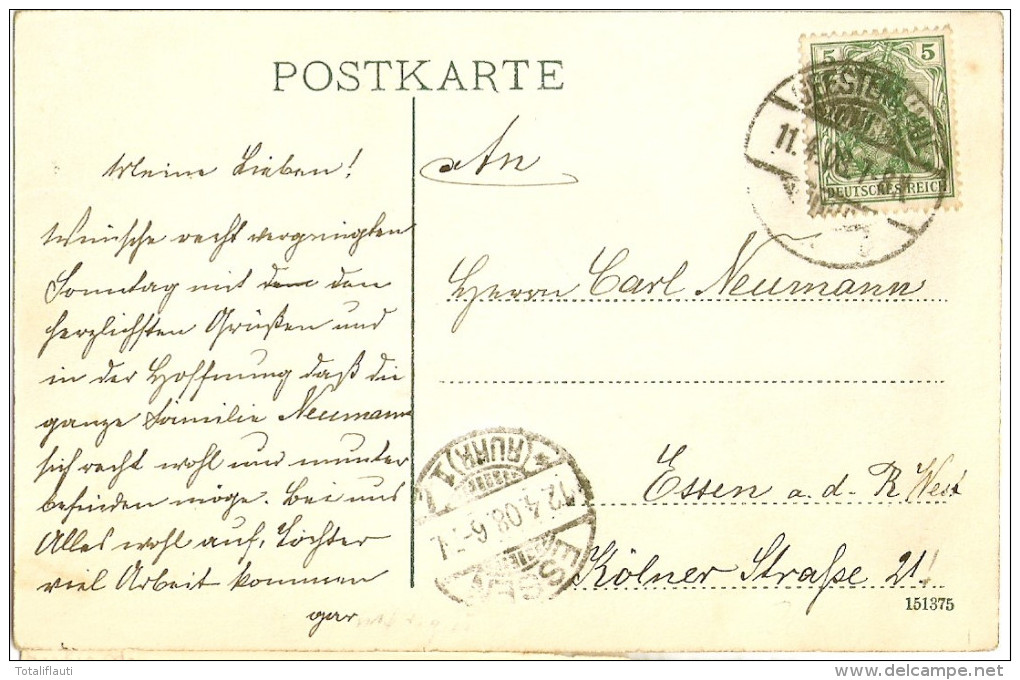 POSTKARTE
5 5
DEUTSCHES REICH
11.4.08
Meine Lieben!
Wünsche recht vergnügten
Sonntag mit dem den
herzlichsten Grüßen und
in der Hoffnung daß die
ganze Familie Neumann
sich recht wohl und munter
befinden möge. Bei uns
Alles wohl auf, Töchter
viel Arbeit kommen
gar
An
Herrn Carl Neumann
Essen a. d. R West
Kölner Straße 21!
(RUHR) 1
12.4.08.6-7
ESSEN
151375
Totaliflauti
www.delcampe.net